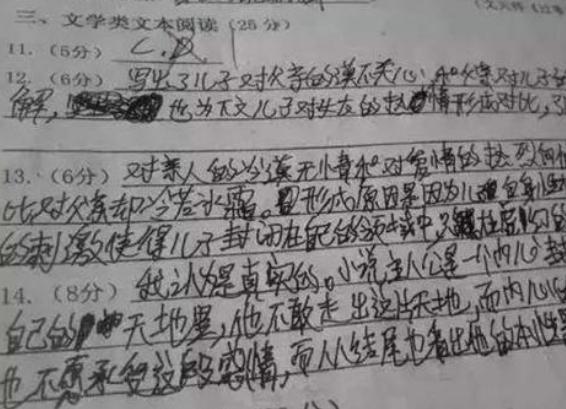 三、文学类文本阅读（25分）
11.（5分） C.D
12.（6分） 写出了儿子对父亲的漠不关心，和父亲对儿子的
解，也为下文儿子对女友的热情形成对比，
13.（6分） 对亲人的冷漠无情和对爱情的热烈向
比对父亲却冷若冰霜。形成原因是因为儿自身
的刺激使得儿子封闭在自己的领域中，
14.（8分） 我认为是真实的。小说主人公是一个内心封
自己的天地里，他不敢走出这片天地，而内心
也不愿承受这段感情，而从结尾也看出他的本性